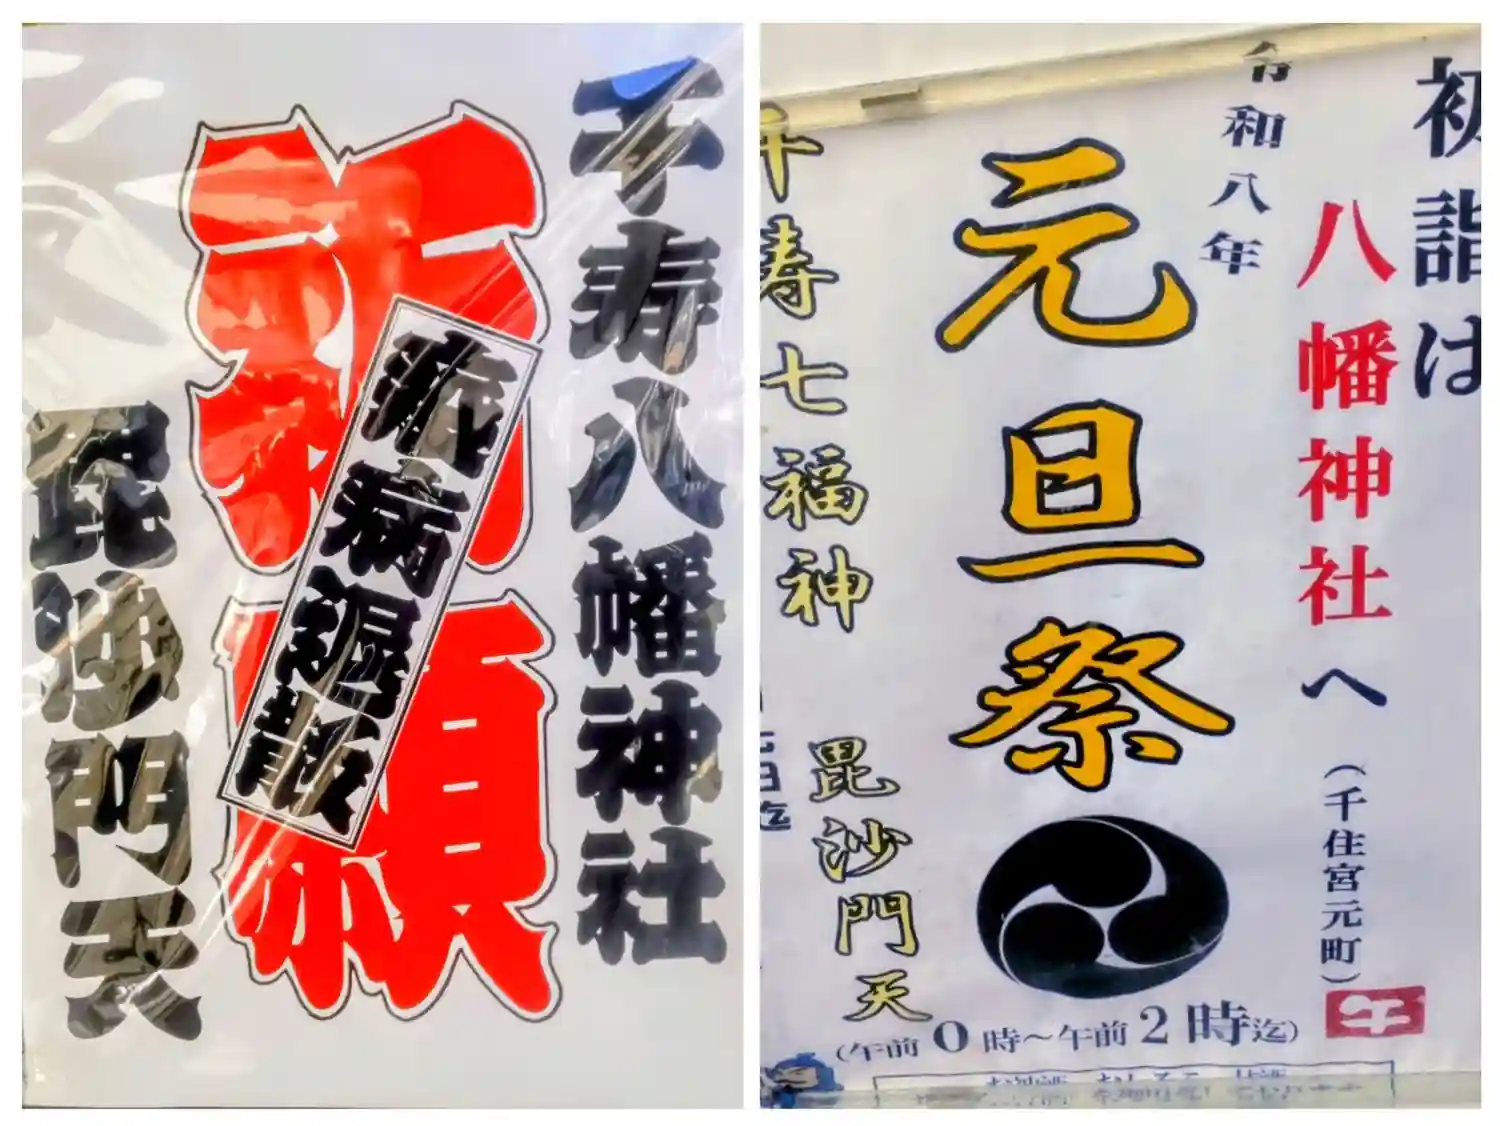 千寿八幡神社
祈願
疫病退散
毘沙門天
初詣は
八幡神社へ
(千住宮元町)
午
令和八年
元旦祭
(午前0時～午前2時迄)
千寿七福神
毘沙門天